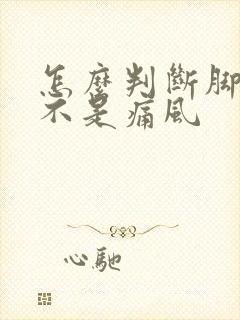 怎麼判斷脚
不是痛風
心馳